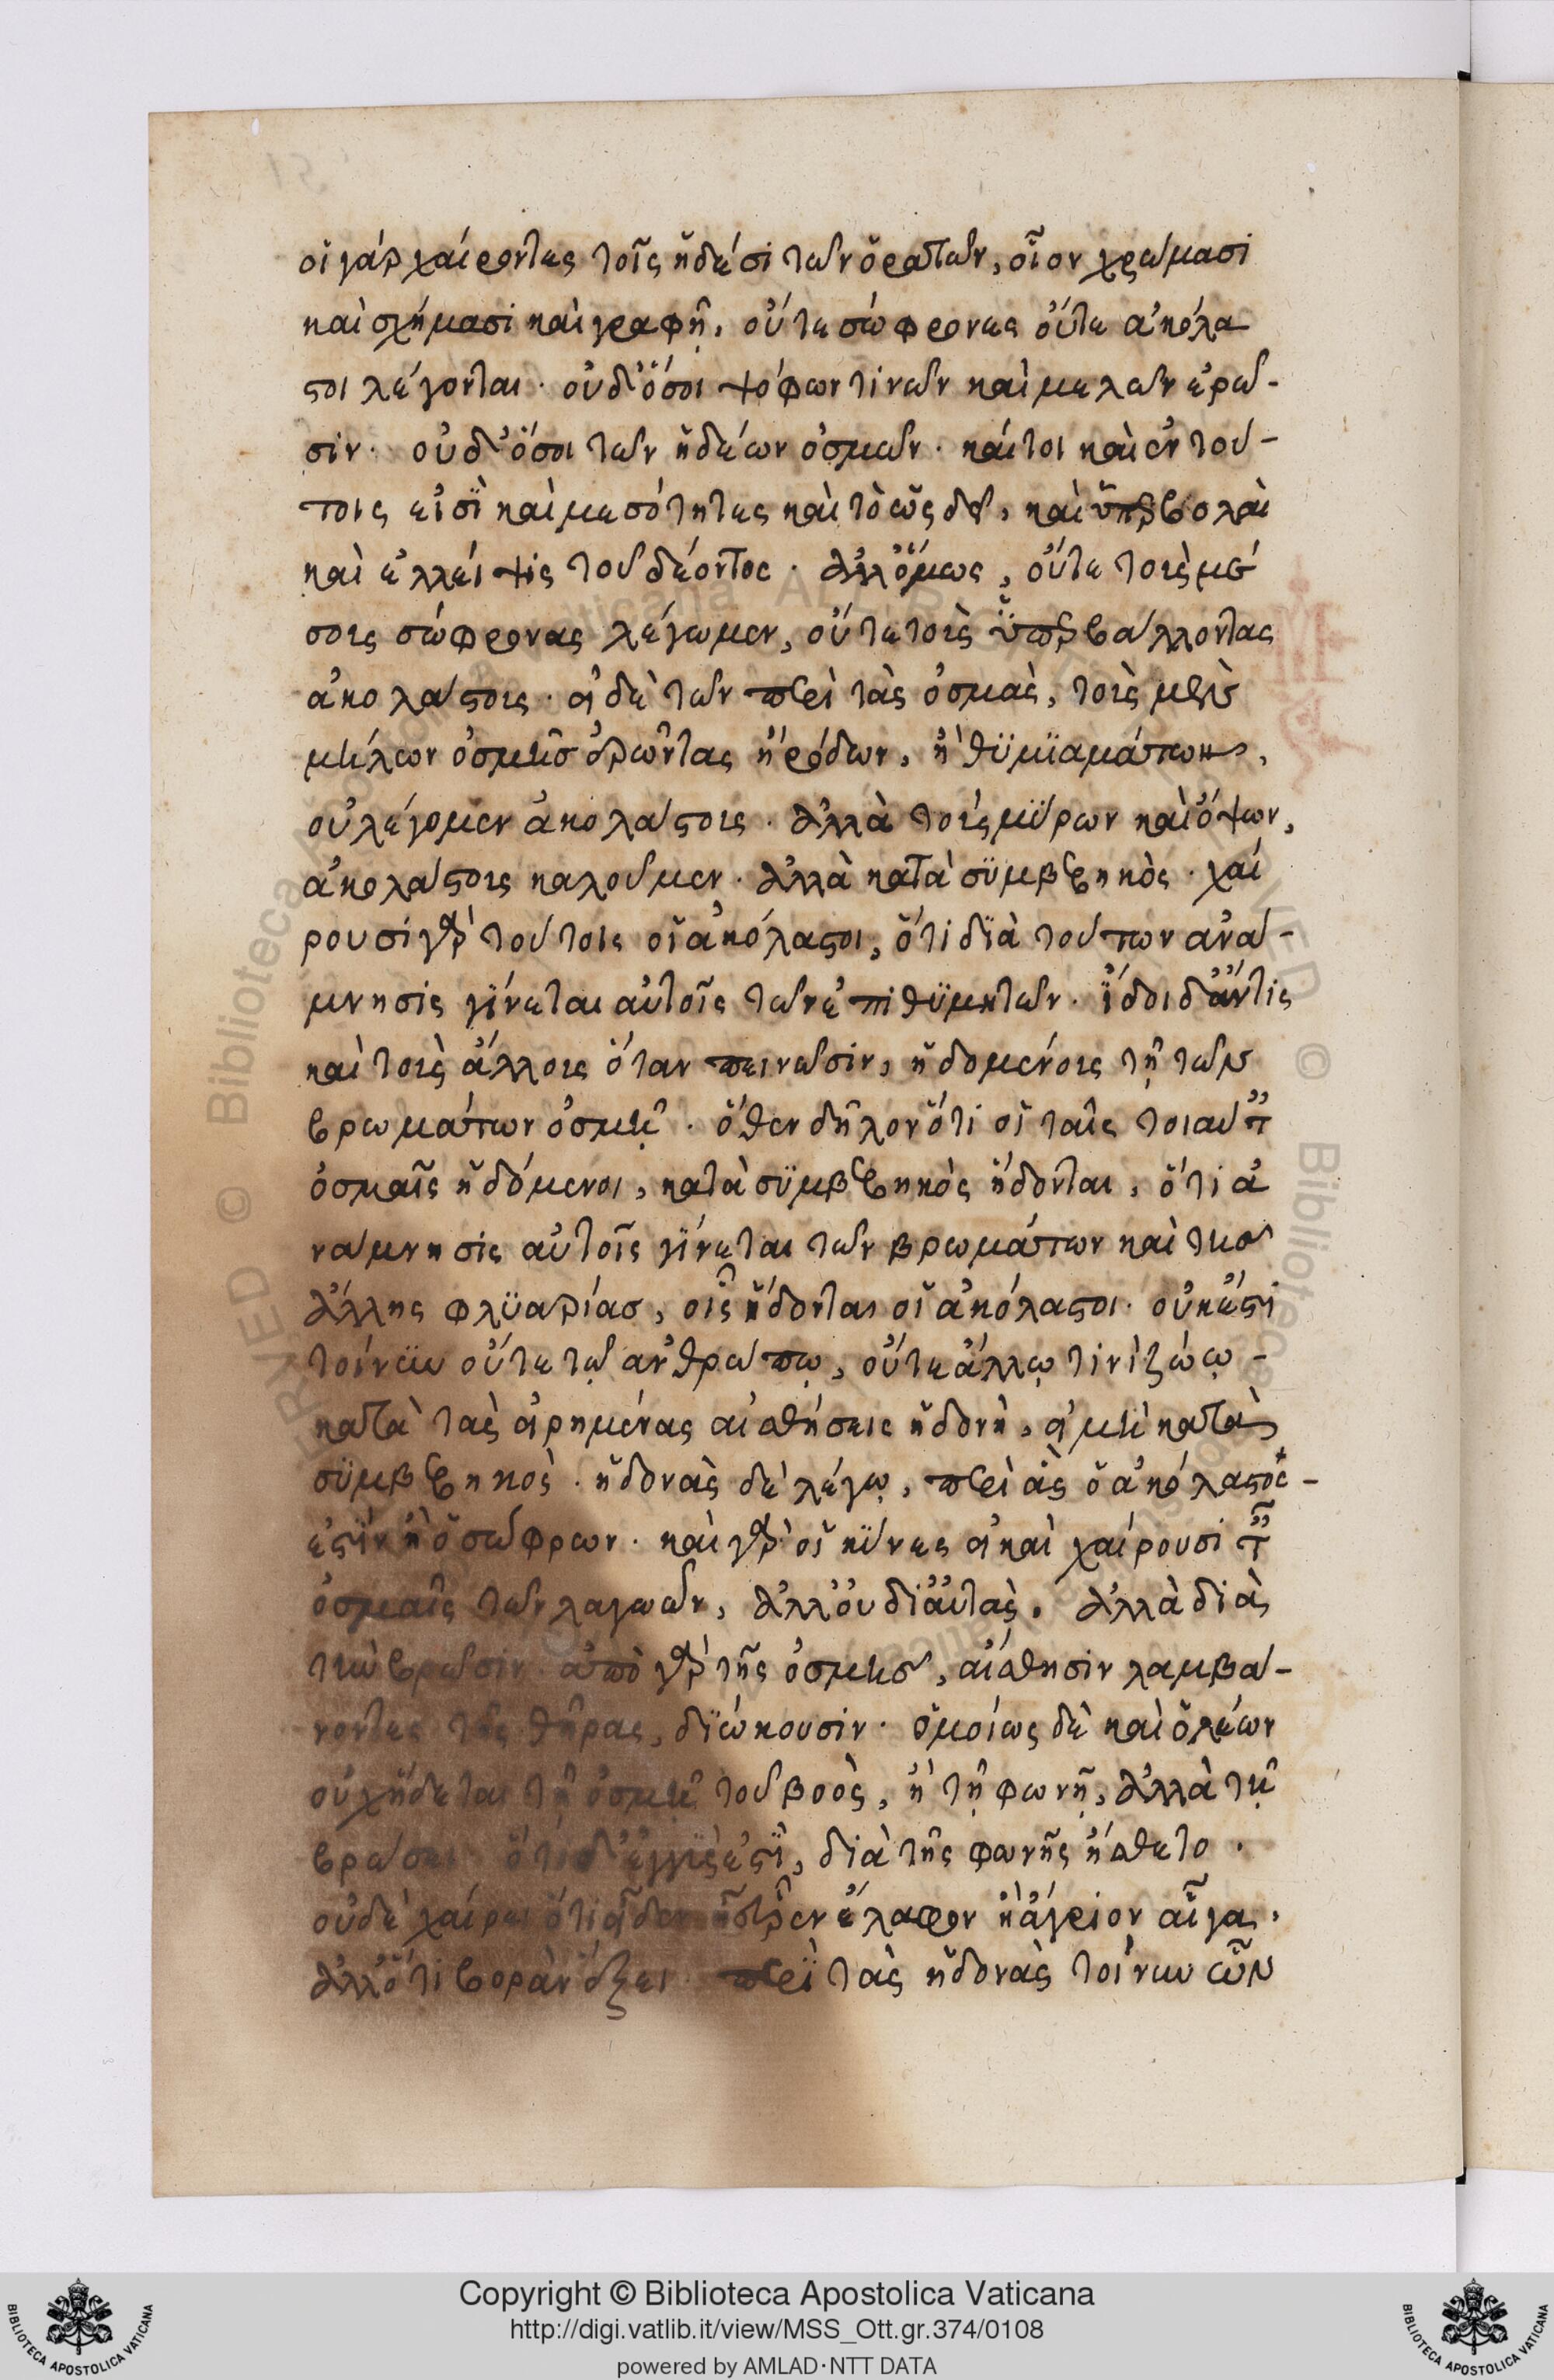 οἱ γάρ χαίροντες τοῖς ἡδέσι τῶν ὁρατῶν, οἷον χρώμασι
καὶ σχήμασι καὶ γραφῇ, οὔτε σώφρονες οὔτε ἀκόλα
στοι λέγονται· οὐδ' ὅσοι ψόφων τινῶν καὶ μελῶν ἐρῶ-
σιν· οὐδ' ὅσοι τῶν ἡδέων ὀσμῶν· καίτοι καὶ ἐν τού-
τοις εἰσὶ καὶ μεσότητες καὶ τὸ ὡς δεῖ, καὶ ὑπερβολαὶ
καὶ ἐλλείψις τοῦ δέοντος· ἀλλ' ὅμως, οὔτε τοὺς μέ
σους σώφρονας λέγωμεν, οὔτε τοὺς ὑπερβάλλοντας
ἀκολάστους· εἰ δὲ τῶν περὶ τὰς ὀσμὰς, τοὺς μὲν
μήλων ὀσμῆς ἐρῶντας ἢ ρόδων, ἢ θυμιαμάτων,
οὐ λέγομεν ἀκολάστους· ἀλλὰ τοὺς μύρων καὶ ὄψων,
ἀκολάστους καλοῦμεν· ἀλλὰ κατὰ συμβεβηκὸς· χαί
ρουσι γὰρ τούτοις οἱ ἀκόλαστοι, ὅτι διὰ τούτων ἀνά-
μνησις γίνεται αὐτοῖς τῶν ἐπιθυμητῶν· ἴδοι δ' ἄν τις
καὶ τοὺς ἄλλους ὅταν πεινῶσιν, ἡδομένους τῇ τῶν
βρωμάτων ὀσμῇ· ὅθεν δῆλον ὅτι οἱ ταῖς τοιαύταις
ὀσμαῖς ἡδόμενοι, κατὰ συμβεβηκὸς ἥδονται, ὅτι ἀ
νάμνησις αὐτοῖς γίνεται τῶν βρωμάτων καὶ τῆς
ἄλλης φλυαρίας, οἷς ἥδονται οἱ ἀκόλαστοι· οὐκ ἔστι
τοίνυν οὔτε τῷ ἀνθρώπῳ, οὔτε ἄλλῳ τινὶ ζώῳ -
κατὰ τὰς εἰρημένας αἰσθήσεις ἡδονὴ, εἰ μὴ κατὰ
συμβεβηκὸς· ἡδονὰς δὲ λέγω, περὶ ἃς ὁ ἀκόλαστός -
ἐστιν ἢ ὁ σώφρων· καὶ γὰρ οἱ κύνες εἰ καὶ χαίρουσι ταῖς
ὀσμαῖς τῶν λαγωῶν, ἀλλ' οὐ δι' αὐτὰς, ἀλλὰ διὰ
τὴν βρῶσιν· ἀπὸ γὰρ τῆς ὀσμῆς, αἴσθησιν λαμβά-
νοντες τῆς θήρας, διώκουσιν· ὁμοίως δὲ καὶ ὁ λέων
οὐχ ἥδεται τῇ ὀσμῇ τοῦ βοὸς, ἢ τῇ φωνῇ, ἀλλὰ τῇ
βρώσει· ὅτι δ' ἐγγύς ἐστὶ, διὰ τῆς φωνῆς ἤσθετο·
οὐδὲ χαίρει ὅτι εἶδεν ἢ εὗρεν ἔλαφον ἢ ἄγριον αἶγα,
ἀλλ' ὅτι βορὰν ἕξει· περὶ τὰς ἡδονὰς τοίνυν ὧν
Copyright © Biblioteca Apostolica Vaticana
http://digi.vatlib.it/view/MSS_Ott.gr.374/0108
powered by AMLAD·NTT DATA